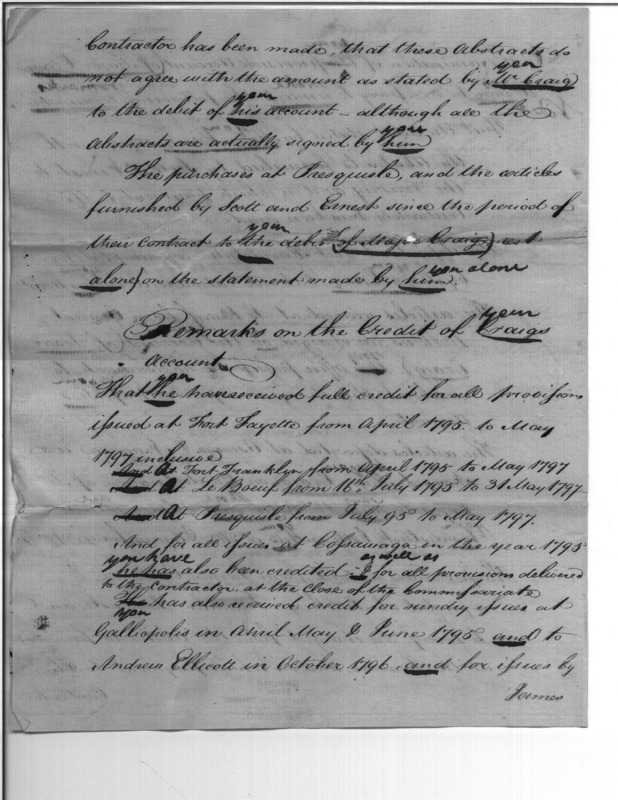 Contractor has been made, that these Abstracts do
your
not agree with the amount as stated by Mr Craig
your
to the debit of his account – although all the
your
Abstracts are actually signed by him
The purchases at Presquisle, and the articles
furnished by Scott and Ernest since the period of
your
their Contract to the debit (of Major Craig rest
you alone
alone) on the statement made by him.
your
Remarks on the Credit of Craigs
Account.
you
That he have received full credit for all provisions
issued at Fort Fayette from April 1795. to May
1797 inclusive
And At Fort Franklyn from April 1795 to May 1797
And At Le Boeuf from 16th July 1795 to 31 May 1797
And At Presquisle from July 95 to May 1797.
And for all issues at Cossawaga in the year 1795
you have as well as
he has also been credited & for all provisions delivered
to the Contractor at the Close of the Commissariate
He has also received credit for sundry issues at
you
Galliopolis in April May & June 1795, and to
Andrew Ellicott in October 1796. and for issues by
James